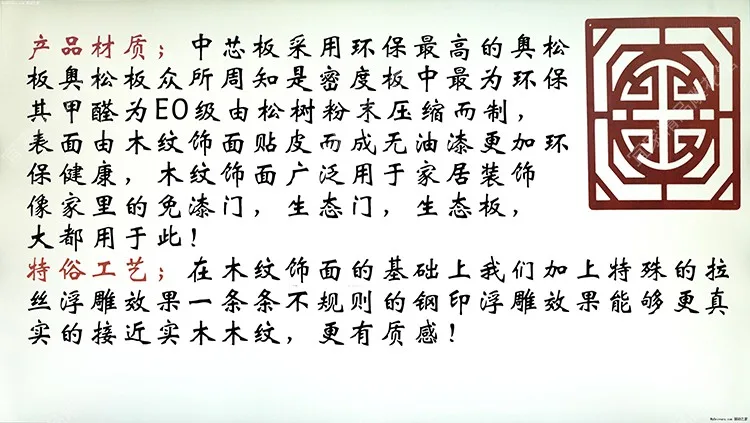 产品材质；中芯板采用环保最高的奥松
板奥松板众所周知是密度板中最为环保
其甲醛为EO级由松树粉末压缩而制，
表面由木纹饰面贴皮而成无油漆更加环
保健康，木纹饰面广泛用于家居装饰
像家里的免漆门，生态门，生态板，
大都用于此！
特俗工艺；在木纹饰面的基础上我们加上特殊的拉
丝浮雕效果一条条不规则的钢印浮雕效果能够更真
实的接近实木木纹，更有质感！